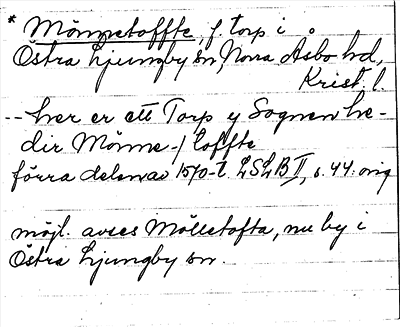 * Mönnetoffte, f. torp i
Östra Ljungby sn, Norra Åsbo hd,
Krist. l.
-- her er ett Torp y Sognen he-
dir Mönne-/toffte
förra delen av 1570-t. LSLB II, s. 44: orig
möjl. avses Mölletofta, nu by i
Östra Ljungby sn.